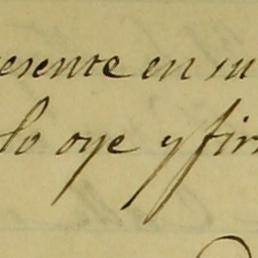 esente en su
lo oye y fir